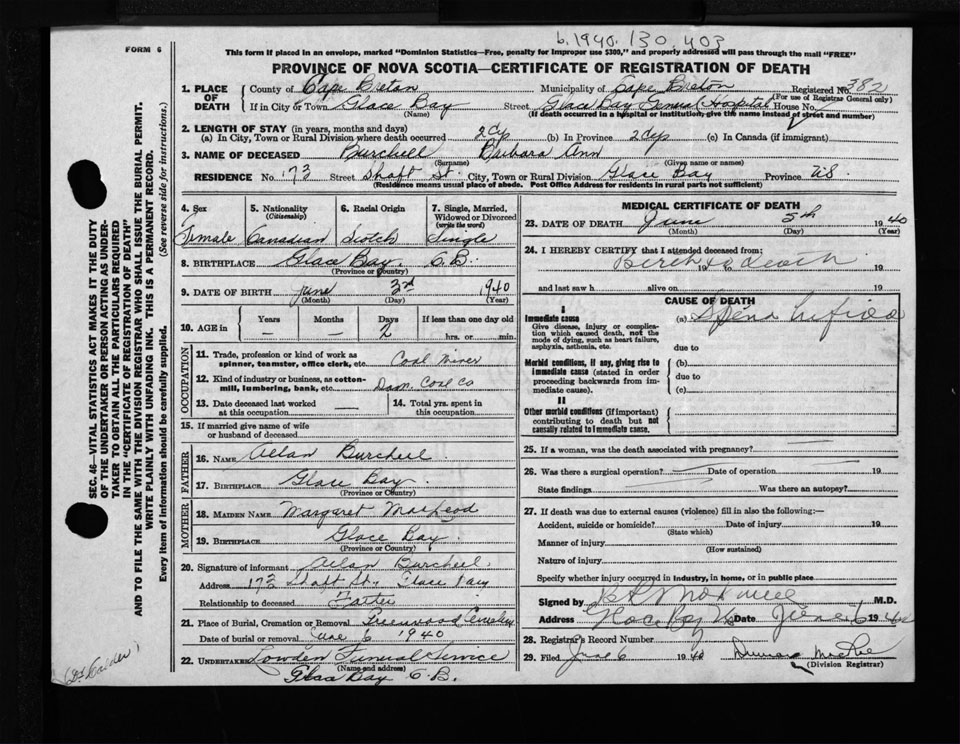 b. 1940. 130. 403
FORM 6
This form if placed in an envelope, marked "Dominion Statistics—Free, penalty for improper use $300," and properly addressed will pass through the mail "FREE"
PROVINCE OF NOVA SCOTIA—CERTIFICATE OF REGISTRATION OF DEATH
1. PLACE OF DEATH
County of Cape Breton Municipality of Cape Breton Registered No. 382
(For use of Registrar General only)
If in City or Town Glace Bay Street Glace Bay General Hospital House No.
(Name) (If death occurred in a hospital or institution, give the name instead of street and number)
2. LENGTH OF STAY (in years, months and days)
(a) In City, Town or Rural Division where death occurred 2 dys (b) In Province 2 dys (c) In Canada (if immigrant)
3. NAME OF DECEASED Burchell Barbara Ann
(Surname) (Given name or names)
RESIDENCE No. 173 Street Shaft St. City, Town or Rural Division Glace Bay Province NS.
(Residence means usual place of abode. Post Office Address for residents in rural parts not sufficient)
4. Sex Female
5. Nationality (Citizenship) Canadian
6. Racial Origin Scotch
7. Single, Married, Widowed or Divorced (write the word) Single
8. BIRTHPLACE Glace Bay C.B.
(Province or Country)
9. DATE OF BIRTH June 3rd 1940
(Month) (Day) (Year)
10. AGE in Years — Months — Days 2 If less than one day old hrs. or min.
OCCUPATION
11. Trade, profession or kind of work as spinner, teamster, office clerk, etc. Coal Miner
12. Kind of industry or business, as cotton-mill, lumbering, bank, etc. Dom. Coal Co
13. Date deceased last worked at this occupation —
14. Total yrs. spent in this occupation
15. If married give name of wife or husband of deceased
FATHER
16. NAME Allan Burchell
17. BIRTHPLACE Glace Bay.
(Province or Country)
MOTHER
18. MAIDEN NAME Margaret MacLeod
19. BIRTHPLACE Glace Bay.
(Province or Country)
20. Signature of informant Allan Burchell.
Address 173 Shaft St. Glace Bay
Relationship to deceased Father
21. Place of Burial, Cremation or Removal Greenwood Cemetery
Date of burial or removal June 6 1940
22. UNDERTAKER Lowden Funeral Service
(Name and address)
Glace Bay C.B.
MEDICAL CERTIFICATE OF DEATH
23. DATE OF DEATH June 5th 1940
(Month) (Day) (Year)
24. I HEREBY CERTIFY that I attended deceased from:
Birth to Death 19
and last saw h alive on 19
CAUSE OF DEATH
I
Immediate cause
Give disease, injury or complication which caused death, not the mode of dying, such as heart failure, asphyxia, asthenia, etc.
(a) Spina bifida
due to
Morbid conditions, if any, giving rise to immediate cause (stated in order proceeding backwards from immediate cause).
(b)
due to
(c)
II
Other morbid conditions (if important) contributing to death but not causally related to immediate cause.
25. If a woman, was the death associated with pregnancy?
26. Was there a surgical operation? Date of operation 19
State findings Was there an autopsy?
27. If death was due to external causes (violence) fill in also the following:—
Accident, suicide or homicide? Date of injury 19
(State which)
Manner of injury
(How sustained)
Nature of injury
Specify whether injury occurred in industry, in home, or in public place
Signed by M.D.
Address Glace Bay NS Date June 6 1940
28. Registrar's Record Number
29. Filed June 6 1940
(Division Registrar)
SEC. 46—VITAL STATISTICS ACT MAKES IT THE DUTY
OF THE UNDERTAKER OR PERSON ACTING AS UNDER-
TAKER TO OBTAIN ALL THE PARTICULARS REQUIRED
IN THE "CERTIFICATE OF REGISTRATION OF DEATH"
AND TO FILE THE SAME WITH THE DIVISION REGISTRAR WHO SHALL ISSUE THE BURIAL PERMIT.
WRITE PLAINLY WITH UNFADING INK. THIS IS A PERMANENT RECORD.
Every item of information should be carefully supplied. (See reverse side for instructions.)
(Dr Calder)